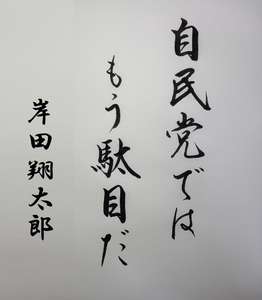 自民党では
もう駄目だ
岸田翔太郎